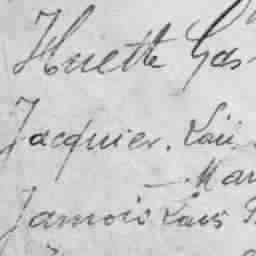 Huette Gas
Jacquier. Loui
— Mar
Jamois Louis